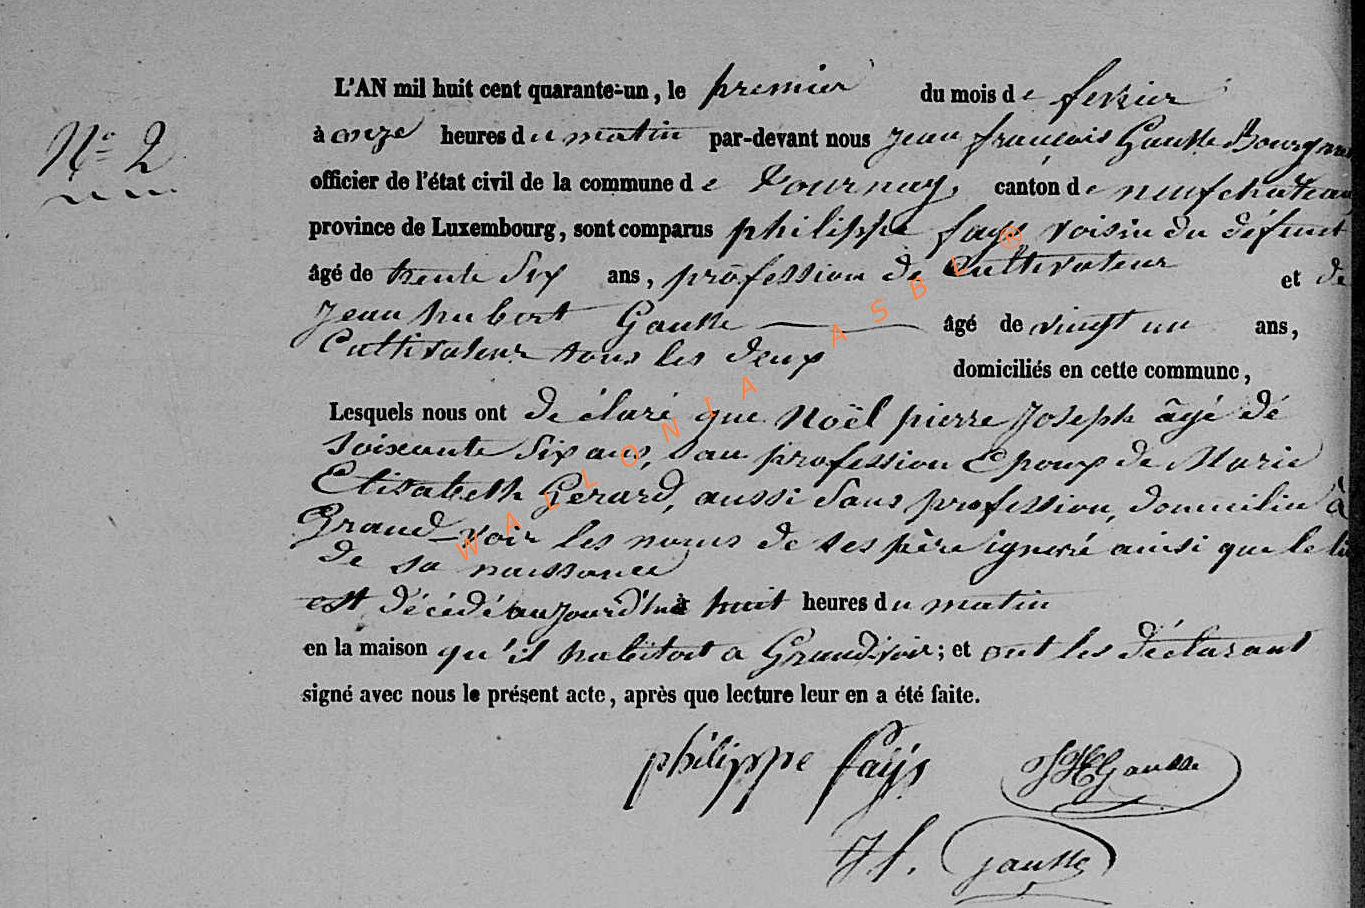 N° 2
L'AN mil huit cent quarante-un, le premier du mois de fevrier
à onze heures du matin par-devant nous jean françois Gausse Bourgm
officier de l'état civil de la commune de Tournay, canton de neufchateau
province de Luxembourg, sont comparus philippe fays voisin du défunt
âgé de trente Six ans, profession de Cultivateur et de
Jean hubert Gausse âgé de vingt un ans,
Cultivateur tous les deux
domiciliés en cette commune,
Lesquels nous ont déclaré que Noël pierre Joseph âgé de
soixante Six ans, San profession Epoux de Marie
Elisabeth Gerard, aussi Sans profession, domicilie à
Grand-voir les noms de ses père ignoré ainsi que le li
de sa naissance
est décédé aujourd'hui à huit heures du matin
en la maison qu'il habitoit a Grandvoir; et ont les déclarant
signé avec nous le présent acte, après que lecture leur en a été faite.
philippe fays JHGausse
J f. Gausse
WALLONIA ASBL ®